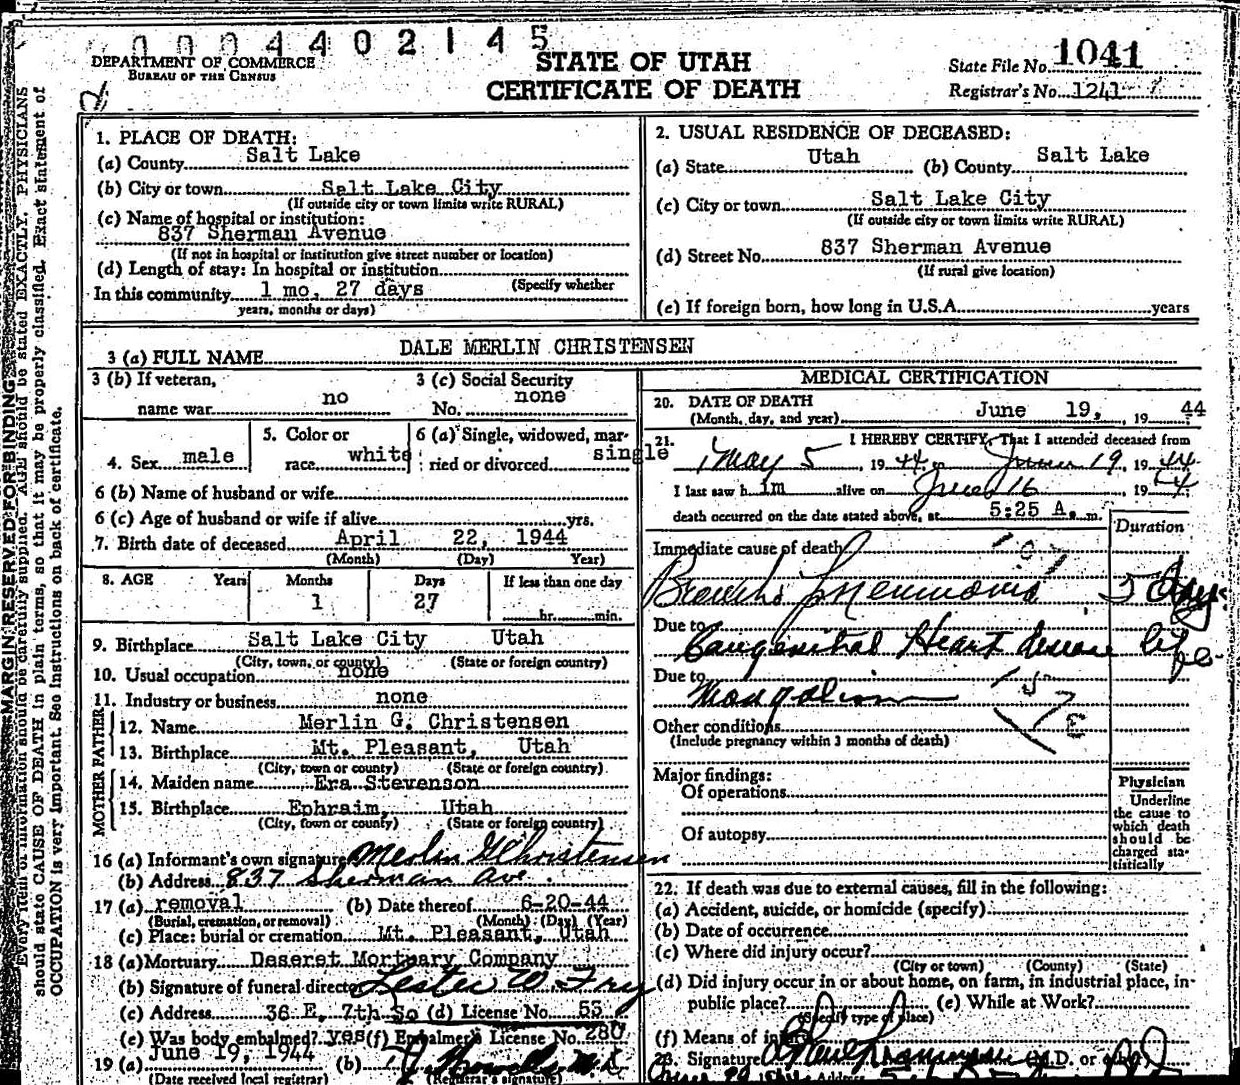 0004402145
DEPARTMENT OF COMMERCE
BUREAU OF THE CENSUS
STATE OF UTAH
CERTIFICATE OF DEATH
State File No. 1041
Registrar's No. 1241
MARGIN RESERVED FOR BINDING
should state CAUSE OF DEATH in plain terms, so that it may be properly classified. Exact statement of
OCCUPATION is very important. See instructions on back of certificate.
1. PLACE OF DEATH:
(a) County Salt Lake
(b) City or town Salt Lake City
(If outside city or town limits write RURAL)
(c) Name of hospital or institution:
837 Sherman Avenue
(If not in hospital or institution give street number or location)
(d) Length of stay: In hospital or institution
(Specify whether
In this community 1 mo. 27 days
years, months or days)
2. USUAL RESIDENCE OF DECEASED:
(a) State Utah (b) County Salt Lake
(c) City or town Salt Lake City
(If outside city or town limits write RURAL)
(d) Street No. 837 Sherman Avenue
(If rural give location)
(e) If foreign born, how long in U.S.A. years
3 (a) FULL NAME DALE MERLIN CHRISTENSEN
3 (b) If veteran, name war no
3 (c) Social Security No. none
4. Sex male
5. Color or race white
6 (a) Single, widowed, married or divorced single
6 (b) Name of husband or wife
6 (c) Age of husband or wife if alive yrs.
7. Birth date of deceased April 22, 1944
(Month) (Day) Year)
8. AGE Years Months Days If less than one day
1 27 hr. min.
9. Birthplace Salt Lake City Utah
(City, town, or county) (State or foreign country)
10. Usual occupation none
11. Industry or business none
FATHER
12. Name Merlin G. Christensen
13. Birthplace Mt. Pleasant, Utah
(City, town or county) (State or foreign country)
MOTHER
14. Maiden name Era Stevenson
15. Birthplace Ephraim, Utah
(City, town or county) (State or foreign country)
16 (a) Informant's own signature Merlin G Christensen
(b) Address 837 Sherman Ave.
17 (a) removal (b) Date thereof 6-20-44
(Burial, cremation, or removal) (Month) (Day) (Year)
(c) Place: burial or cremation Mt. Pleasant, Utah
18 (a) Mortuary Deseret Mortuary Company
(b) Signature of funeral director Lester W. Fry
(c) Address 36 E. 7th So (d) License No. 53
(e) Was body embalmed? yes (f) Embalmer's License No. 280
19 (a) June 19, 1944 (b)
(Date received local registrar) (Registrar's signature)
MEDICAL CERTIFICATION
20. DATE OF DEATH
(Month, day, and year) June 19, 19 44
21. I HEREBY CERTIFY, That I attended deceased from
May 5, 19 44, June 19, 19 44
I last saw h im alive on June 16, 19 44
death occurred on the date stated above, at 5:25 A. m.
Duration
Immediate cause of death 107
Broncho Pneumonia 5 days
Due to
Congenital Heart disease life
Due to
Mongolism 157 E
Other conditions
(Include pregnancy within 3 months of death)
Major findings:
Of operations
Of autopsy
Physician
Underline
the cause to
which death
should be
charged sta-
tistically
22. If death was due to external causes, fill in the following:
(a) Accident, suicide, or homicide (specify)
(b) Date of occurrence
(c) Where did injury occur?
(City or town) (County) (State)
(d) Did injury occur in or about home, on farm, in industrial place, in-
public place? (e) While at Work?
(Specify type of place)
(f) Means of injury
23. Signature (M.D. or